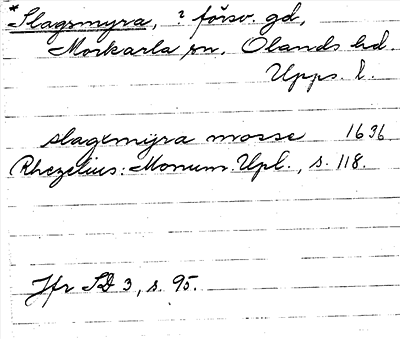 *Slagsmyra, ? försv. gd,
Morkarla sn. Olands hd.
Upps. l.
slagxmÿra mosse 1636
Rhezelius: Monum. Upl., s. 118.
Jfr SD 3, s. 95.